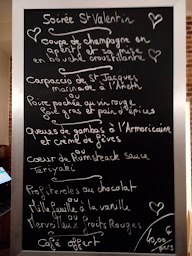 Soirée St Valentin
coupe de champagne en
apéritif et sa mise
en bouche croustillante
Carpaccio de St Jacques
marinade à l'Aneth
ou
Poire pochée au vin rouge
foie gras et pain d'épices
Queues de gambas à l'Armoricaine
et crème de fèves
ou
Coeur de Rumsteack sauce
Teriyaki
Profiteroles au chocolat
ou
Millefeuille à la vanille
Nervolaux Fruits Rouges
Café offert